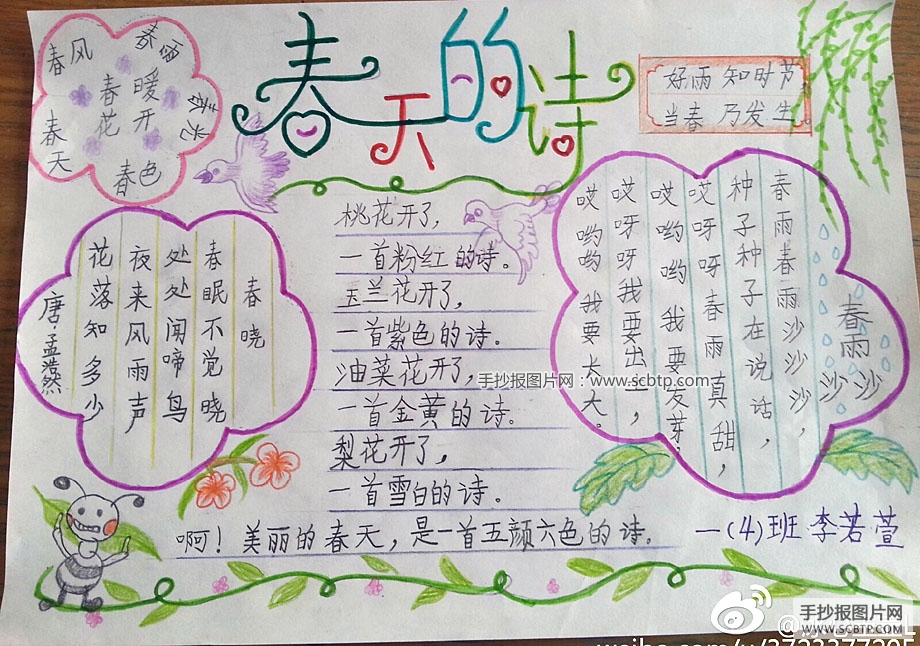 春天的诗
春风
春雨
春暖
花开
春光
春天
春色
好雨知时节
当春乃发生
春晓
春眠不觉晓
处处闻啼鸟
夜来风雨声
花落知多少
唐·孟浩然
桃花开了,
一首粉红的诗。
玉兰花开了,
一首紫色的诗。
油菜花开了,
一首金黄的诗。
梨花开了,
一首雪白的诗。
啊!美丽的春天,是一首五颜六色的诗。
春雨沙沙
春雨春雨沙沙沙,
种子种子在说话,
哎呀呀春雨真甜,
哎哟哟我要发芽。
哎呀呀我要出土,
哎哟哟我要长大。
一(4)班李若萱
手抄报图片网:www.scbtp.com
手抄报图片网
WWW.SCBTP.COM